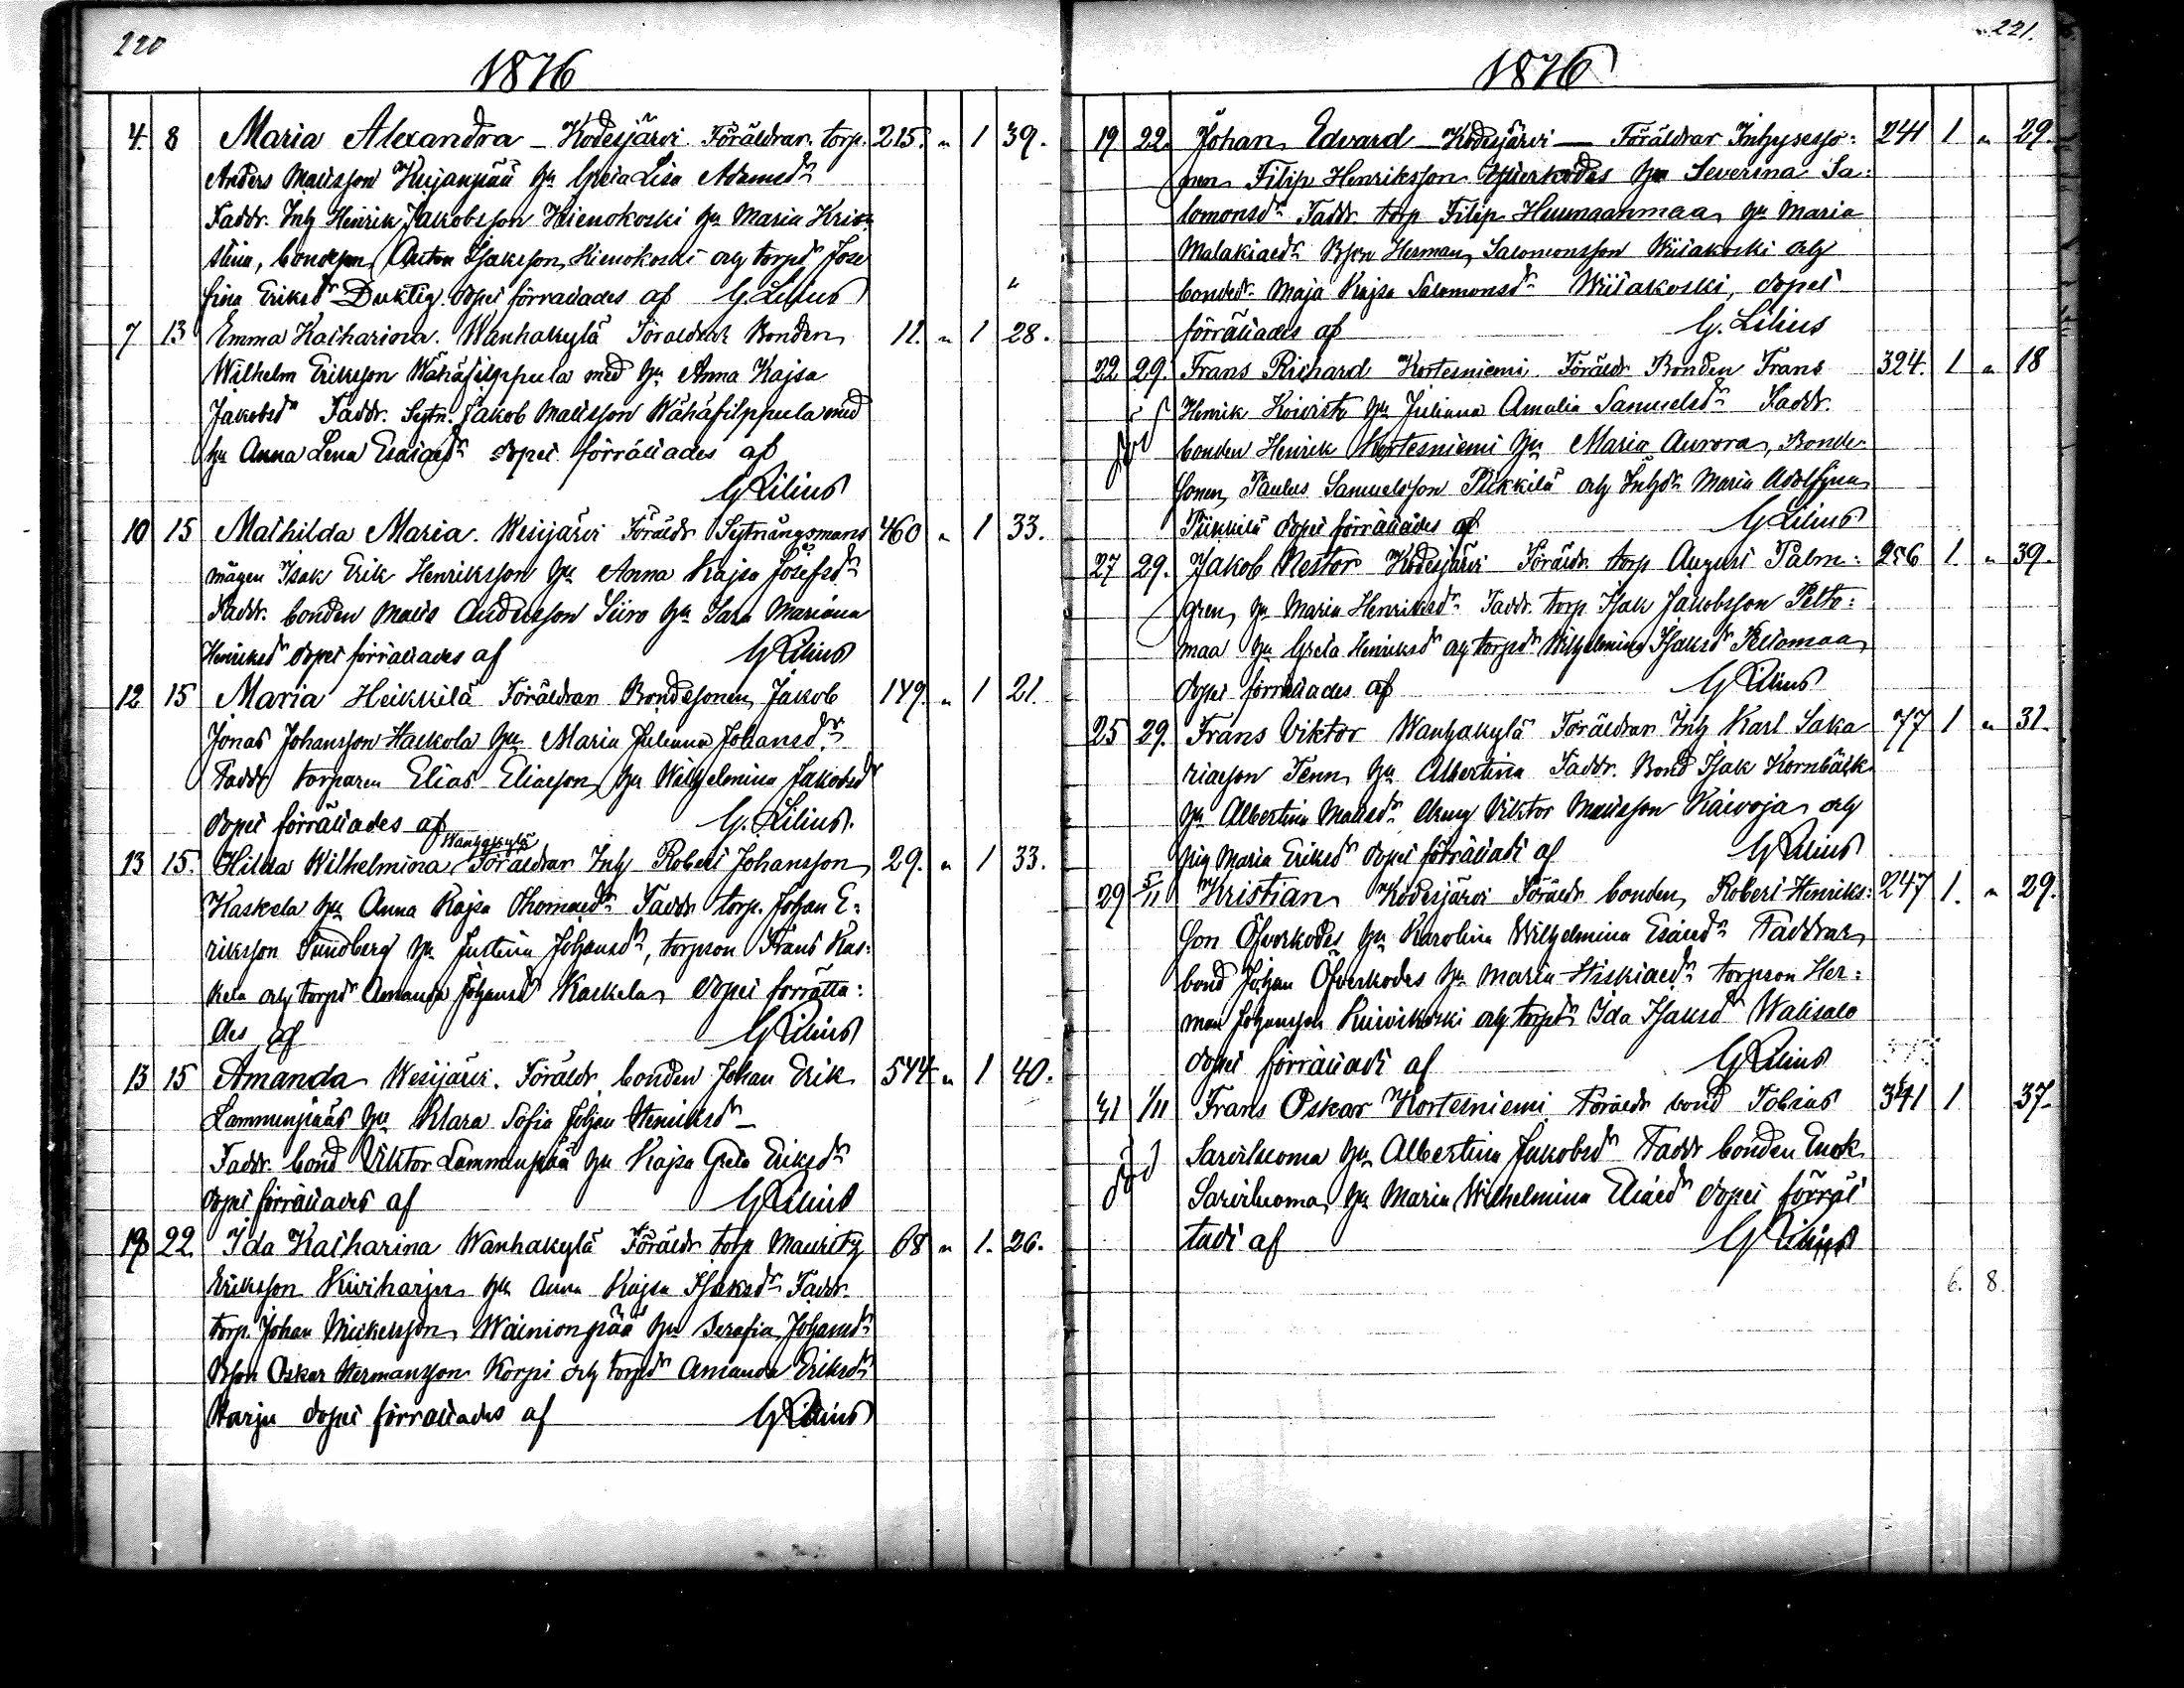 220
1876
4. 8 Maria Alexandra - Kodesjärvi Föräldrar. torp. 215. " 1 39.
Anders Mattsson Kujanpää hu Greta Lisa Adamsdr
Faddr. Inh Henrik Jakobsson Hienokoski hu Maria Kris
tina, bondeson Anton Isaksson Hienokoski och torpdr Jose
fina Eriksdr Duktig. Dopet förrättades af G. Lilius "
7 13 Emma Katharina. Wanhakylä Föräldrar Bonden 11. " 1 28.
Wilhelm Eriksson Wähäfilppula med hu Anna Kajsa
Jakobsdr Faddr. Sytn. Jakob Mattsson Wähäfilppula med
hu Anna Lena Esaiaedr dopet förrättades af
G Lilius
10 15 Mathilda Maria. Wesijärvi Föräldr Sytningsmans 460 " 1 33.
mågen Isak Erik Henriksson hu Anna Kajsa Josefsdr
Faddr. bonden Matts Andersson Siiro hu Sara Mariana
Henriksdr dopet förrättades af G Lilius
12 15 Maria Heikkilä Föräldrar Bondesonen Jakob 149. " 1 21.
Jonas Johansson Haskola hu Maria Juliana Johansdr
Faddr torparen Elias Eliasson hu Wilhelmina Jakobsdr
dopet förrättades af G. Lilius.
Wanhakylä
13 15. Hilda Wilhelmina Föräldrar Inh Robert Johansson 29. " 1 33.
Kaskela hu Anna Kajsa Thomaedr Faddr torp. Johan E=
riksson Sundberg hu Justina Johansdr, torpson Frans Kas=
kela och torpdr Amanda Johansdr Kaskela dopet förrätta=
des af G Lilius
13 15 Amanda Wesijärvi. Föräldr bonden Johan Erik 544 " 1 40.
Lammenpää hu Klara Sofia Johan Henriksdr -
Faddr. bond Viktor Lammenpää hu Kajsa Greta Eriksdr
dopet förrättades af G Lilius
22. Ida Katharina Wanhakylä Föräldr torp Mauritz 68 " 1. 26.
Eriksson Kiviharju hu Anna Kajsa Isaksdr Faddr.
torp. Johan Mickelsson Wainionpää hu Serafia Johansdr
Bson Oskar Hermansson Korpi och torpdr Amanda Eriksdr
Harju dopet förrättades af G Lilius
221.
1876
19 22. Johan Edvard - Kodesjärvi - Föräldrar Inhyseso= 241 1 " 29.
nen Filip Henriksson Ytterkodes hu Severina Sa=
lomonsdr Faddr torp Filip Huumaanmaa hu Maria
Malakiaedr Bson Herman Salomonsson Wiitakoski och
bondedr. Maja Kajsa Salomonsdr Wiitakoski, dopet
förrättades af G. Lilius
22 29. Frans Richard Kortesniemi Föräldr Bonden Frans 324. 1 " 18
Henrik Koivisto hu Juliana Amalia Samuelsdr Faddr.
bonden Henrik Kortesniemi hu Maria Aurora, Bonde
sonen Paulus Samuelsson Piikkilä och Inhdr Maria Adolfina
Piikkilä dopet förrättades af G Lilius
27 29. Jakob Nestor Kodesjärvi Föräldr. torp August Palm= 256 1. " 39.
gren hu Maria Henriksdr Faddr. torp Isak Jakobsson Pelto=
maa hu Greta Henriksdr och torpdr Wilhelmina Isaksdr Peltomaa
dopet förrättades af G Lilius
25 29. Frans Viktor Wanhakylä Föräldrar Inh Karl Saka 77 1 " 31.
riasson Tenn hu Albertina Faddr. Bond Isak Kornbäck
hu Albertina Mattsdr dreng Viktor Mattsson Kaivoja och
pig Maria Eriksdr dopet förrättadt af G Lilius
29 5/11 Kristian Kodesjärvi Föräldr bonden Robert Henriks= 247 1. " 29.
son Öfverkodes hu Karolina Wilhelmina Esaiaedr Faddrar
bond Johan Öfverkodes hu Maria Hiskiaedr torpson Her=
man Johansson Kuivikoski och torpdr Ida Isaksdr Walisalo
dopet förrättadt af G Lilius
31 1/11 Frans Oskar Kortesniemi Föräldr bond Tobias 341 1 37.
Sarviluoma hu Albertina Jakobsdr Faddr bonden Enok
Sarviluoma hu Maria Wilhelmina Eliaedr dopet förrät
tadt af G Lilius
6. 8.